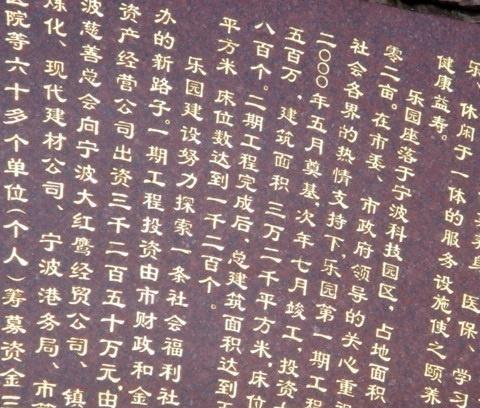 乐、休闲于一体的服务设施,使之颐养
健康益寿。
乐园座落于宁波科技园区,占地面积
零二亩。在市委、市政府领导的关心重
社会各界的热情支持下,乐园第一期工程
二〇〇〇年五月奠基,次年七月竣工,投资
五百万,建筑面积三万二千平方米,床位
八百个。二期工程完成后,总建筑面积达到
平方米,床位数达到一千二百个。
乐园建设努力探索一条社会福利社
办的新路子。一期工程投资由市财政和金
资产经营公司出资三千二百五十万元,由
波慈善总会向宁波大红鹰经贸公司、镇
炼化、现代建材公司、宁波港务局、市
医院等六十多个单位(个人)筹募资金